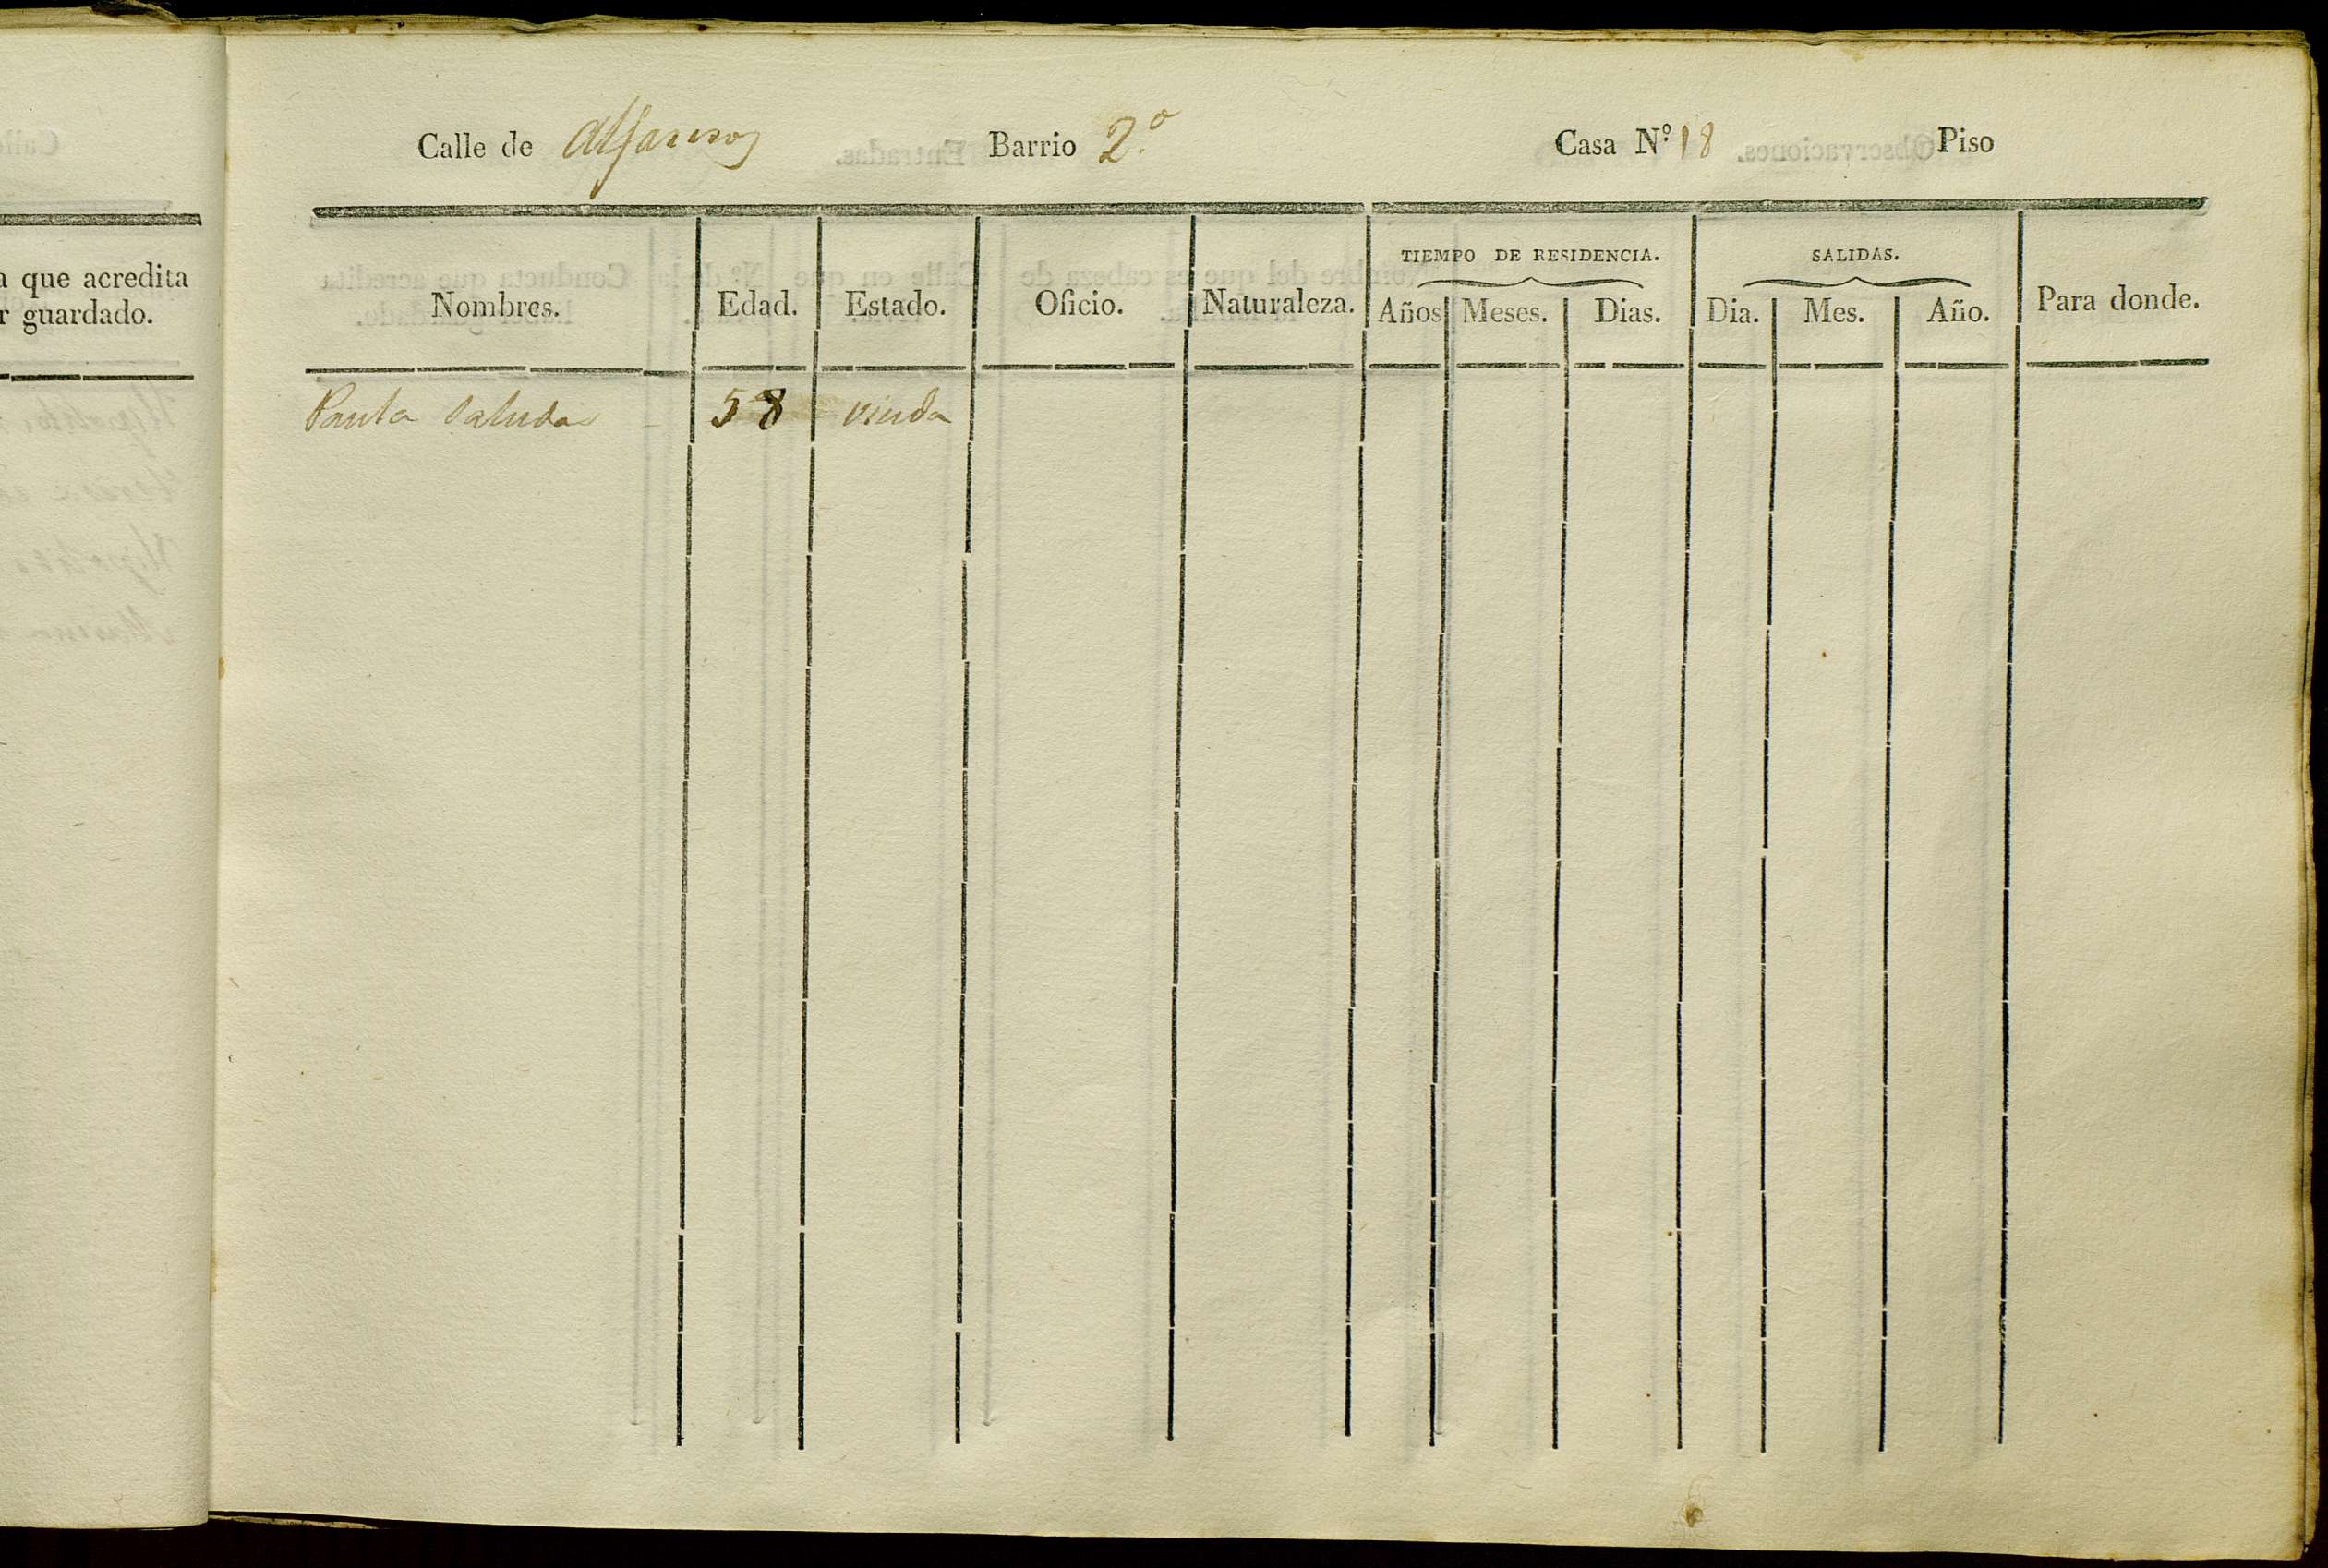 a que acredita
r guardado.
Calle de Alfareros Barrio 2.º Casa N.º 18 Piso
TIEMPO DE RESIDENCIA. SALIDAS.
Nombres. Edad. Estado. Oficio. Naturaleza. Años Meses. Dias. Dia. Mes. Año. Para donde.
Paula 58 viuda